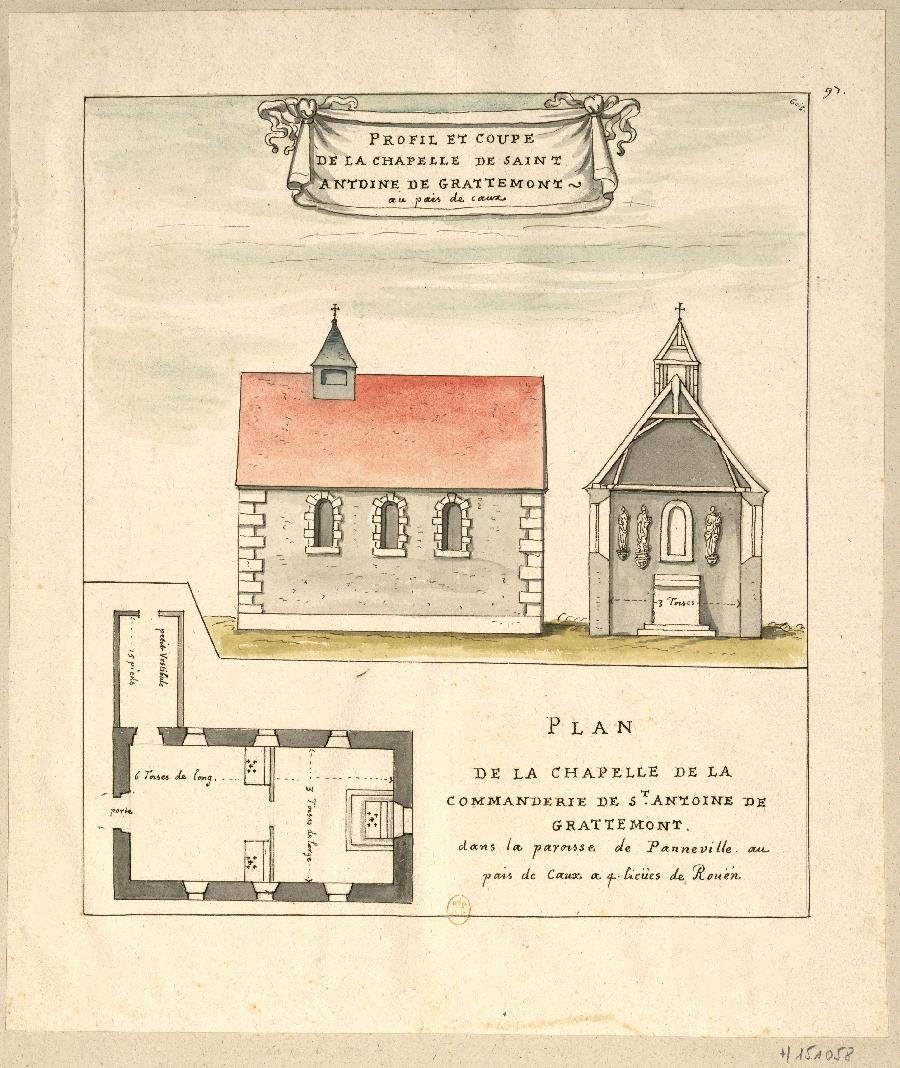 97.
PROFIL ET COUPE
DE LA CHAPELLE DE SAINT
ANTOINE DE GRATTEMONT ~
au païs de caux
3 Toises
petit Vestibule
15 pieds
6 Toises de long.
3 Toises de large
porte
PLAN
DE LA CHAPELLE DE LA
COMMANDERIE DE ST. ANTOINE DE
GRATTEMONT.
dans la paroisse de Panneville au
païs de Caux a 4. lieües de Roüen
H 151058